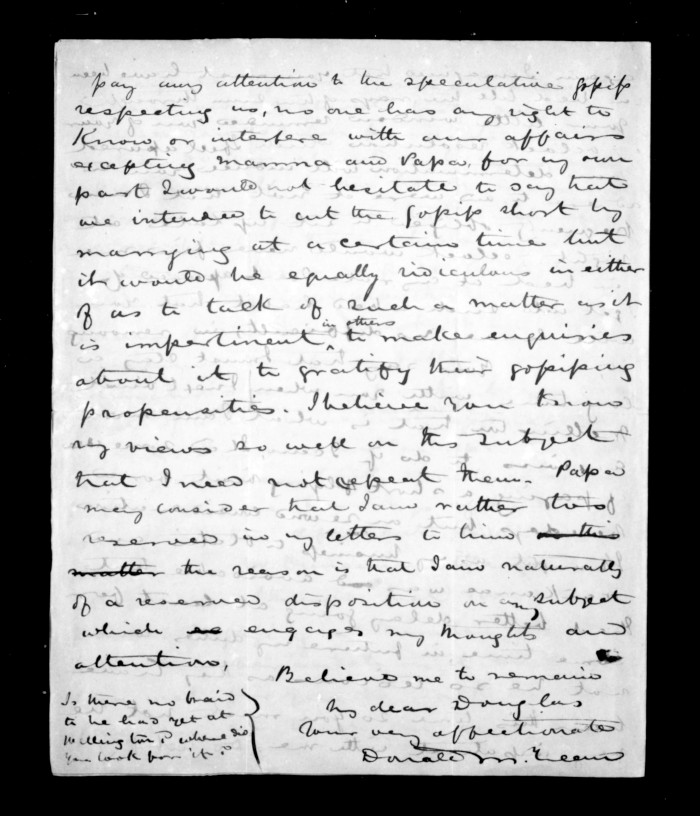 pay any attention to the speculative gossip
respecting us, no one has any right to
know or interfere with our affairs
excepting Mamma and Papa, for my own
part I would not hesitate to say that
we intended to cut the gossip short by
marrying at a certain time but
it would be equally ridiculous in either
of us to talk of such a matter as it
in others
is impertinent to make enquiries
about it to gratify their gossiping
propensities. I believe you know
my views so well on this subject
that I need not repeat them. Papa
may consider that I am rather too
reserved in my letters to him on this
matter the reason is that I am naturally
of a reserved disposition on any subject
which engages my thoughts and
attention,
Believe me to remain
My dear Douglas
Your very affectionate
Donald McLean
Is there no braid
to be had yet at
Wellington? where did
you look for it?